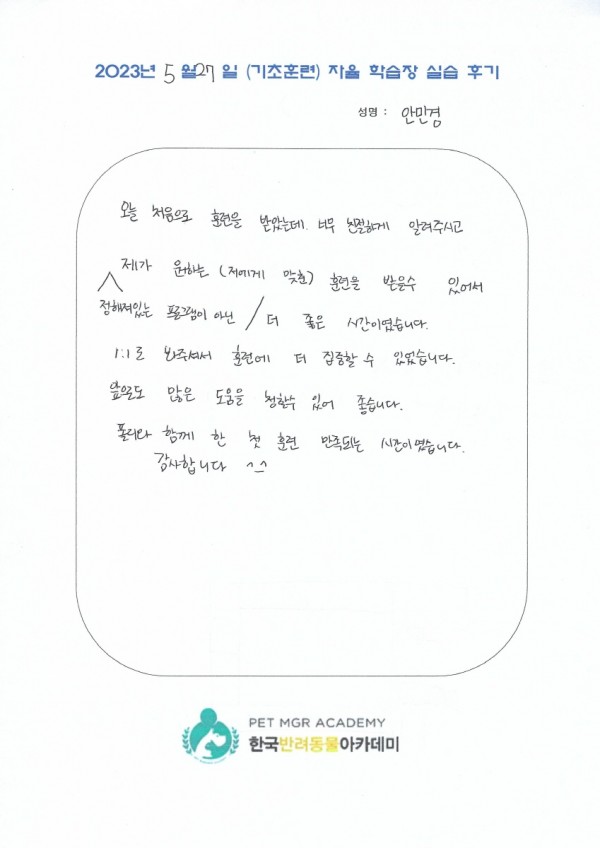 2023년 5월 27일 (기초훈련) 자율 학습장 실습 후기
성명 : 안민경
오늘 처음으로 훈련을 받았는데. 너무 친절하게 알려주시고
제가 원하는 (저에게 맞춘) 훈련을 받을수 있어서
정해져있는 프로그램이 아닌 / 더 좋은 시간이였습니다.
1:1로 봐주셔서 훈련에 더 집중할 수 있었습니다.
앞으로도 많은 도움을 청할수 있어 좋습니다.
폴리와 함께 한 첫 훈련 만족되는 시간이였습니다.
감사합니다 ^_^
PET MGR ACADEMY
한국반려동물아카데미